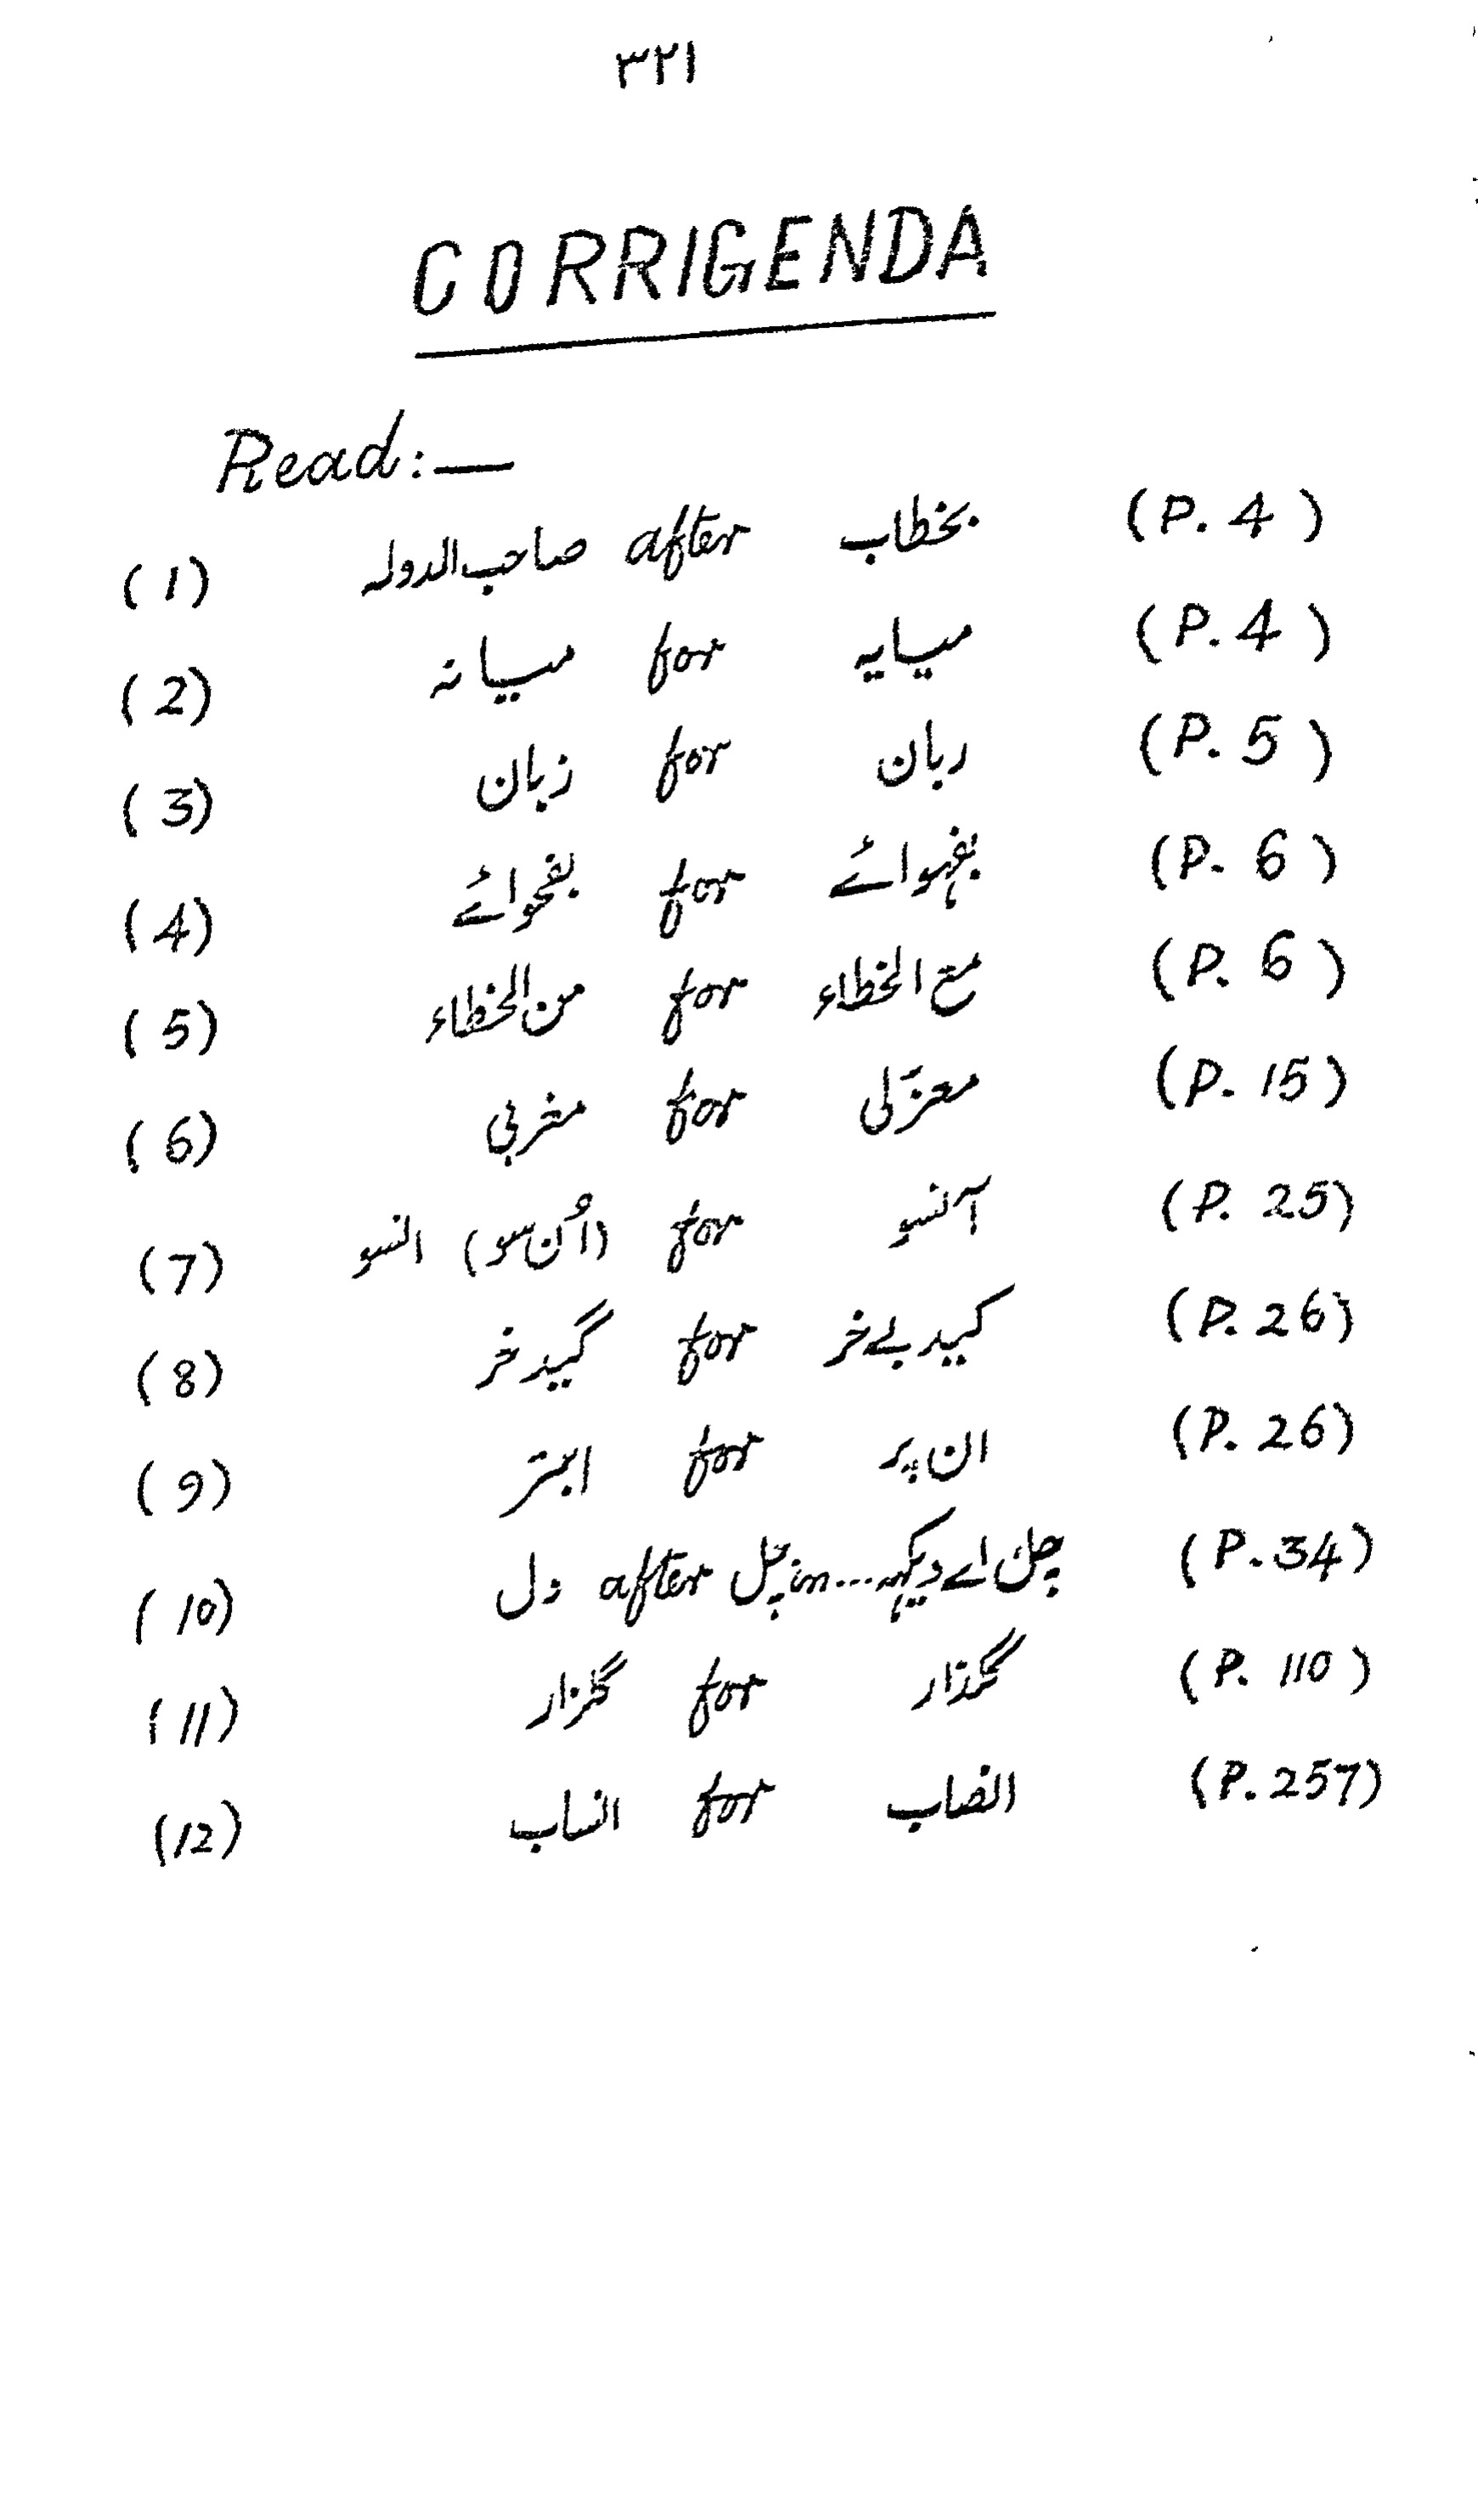 ۳۲۱
CORRIGENDA
Read:—
(1) صاحب الدولہ after بخطاب (P. 4)
(2) میانہ for میایہ (P. 4)
(3) زبان for ربان (P. 5)
(4) بفحوائے for بفہوائے (P. 6)
(5) من الخطاء for مع الخطاء (P. 6)
(6) for (P. 15)
(7) (اُن سو) انسو for آنسو (P. 25)
(8) گیدخر for کیدبےخر (P. 26)
(9) ابتر for ان پر (P. 26)
(10) دل after in ... اے دیکہہ (P. 34)
(11) for (P. 110)
(12) انساب for الضاب (P. 257)